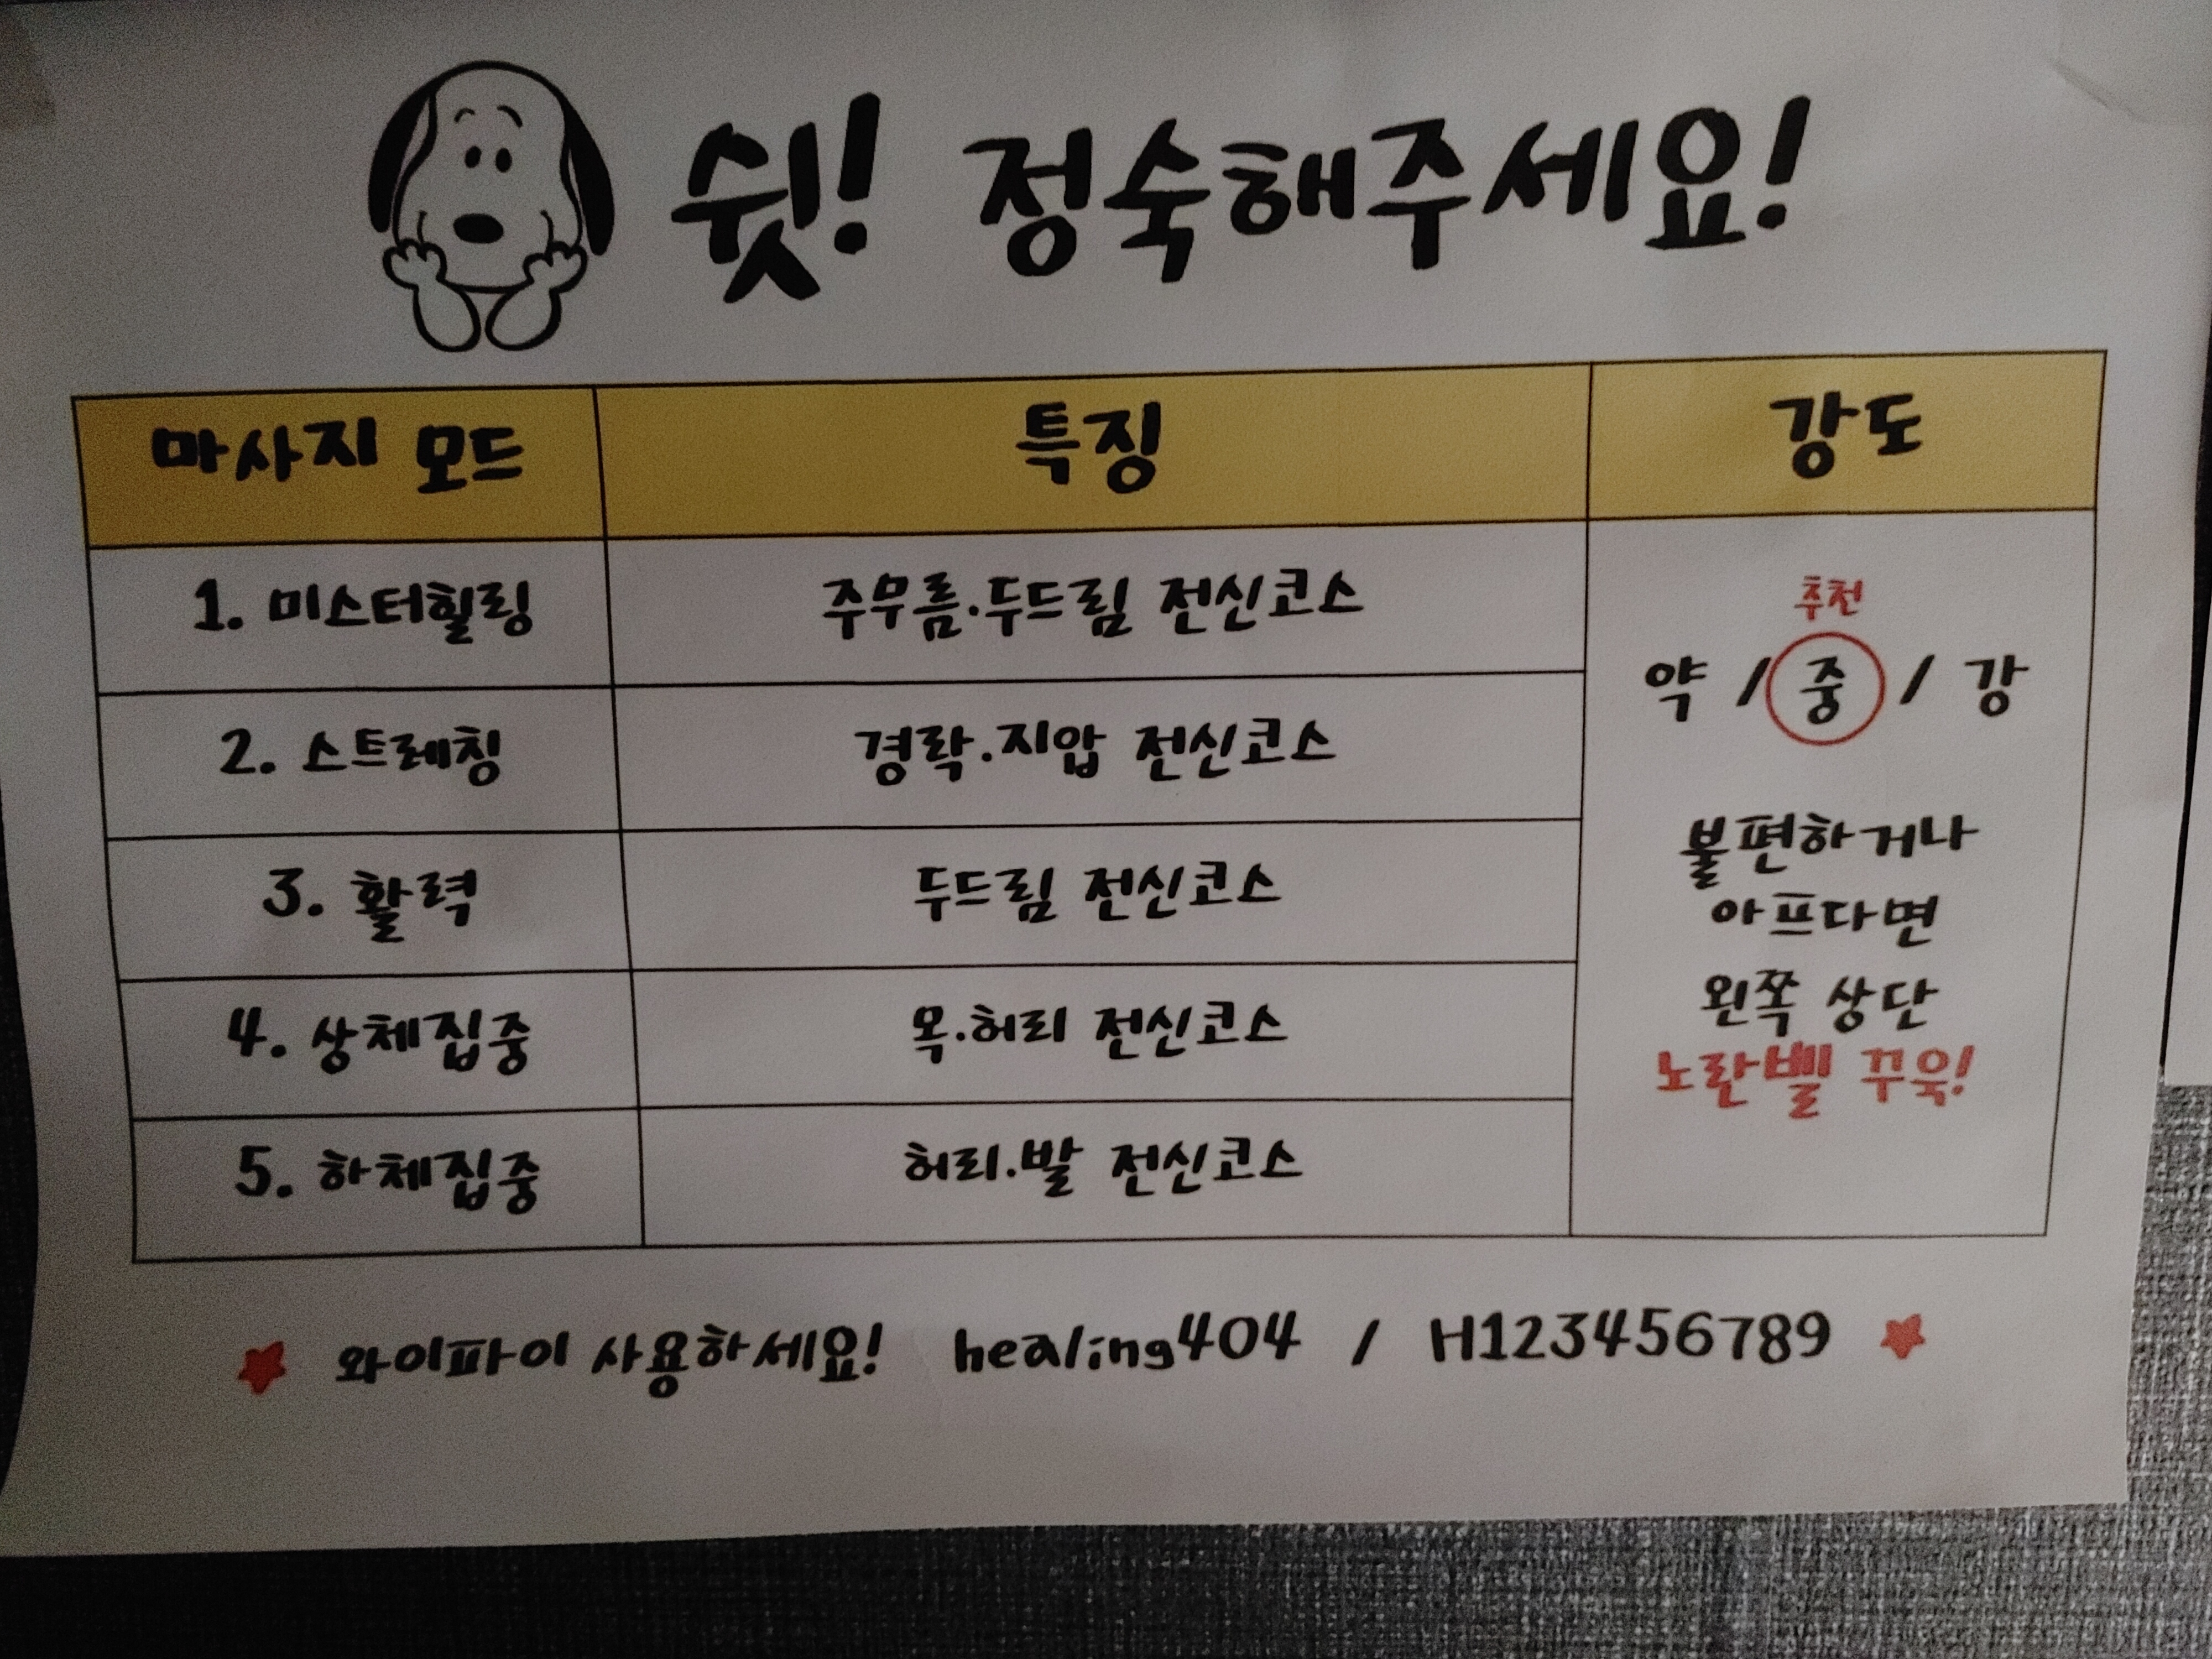 쉿! 정숙해주세요!
마사지 모드 특징 강도
1. 미스터힐링 주무름·두드림 전신코스
2. 스트레칭 경락·지압 전신코스
3. 활력 두드림 전신코스
4. 상체집중 목·허리 전신코스
5. 하체집중 허리·발 전신코스
추천
약 / 중 / 강
불편하거나
아프다면
왼쪽 상단
노란벨 꾸욱!
와이파이 사용하세요! healing404 / H123456789